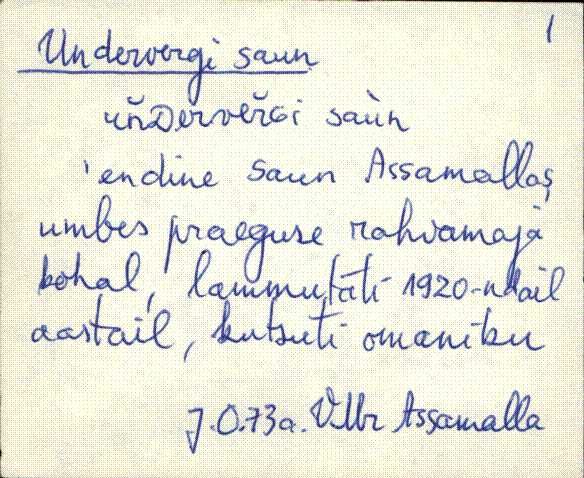 1
Undervergi saun
un̆DervĕrGi saùn
'endine saun Assamallas
umbes praeguse rahvamaja
kohal, lammutati 1920-ndail
aastail, kutsuti omaniku
J.O. 73a. VMr Assamalla